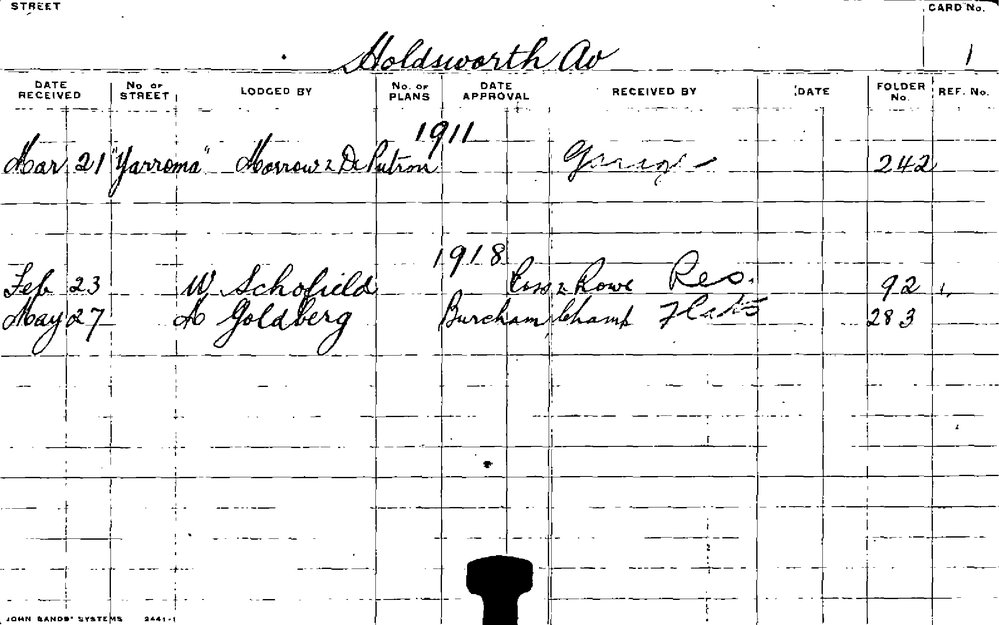 STREET
CARD No.
Holdsworth Av
1
DATE RECEIVED No OF STREET LODGED BY No. OF PLANS DATE APPROVAL RECEIVED BY DATE FOLDER No. REF. No.
1911
Mar 21 "Yarroma" Morrow & De Putron Garage 242
1918
Feb 23 W Schofield Ross & Rowe Res. 92
May 27 A Goldberg Burcham Champ Flats 283
JOHN SANDS' SYSTEMS 2441-1